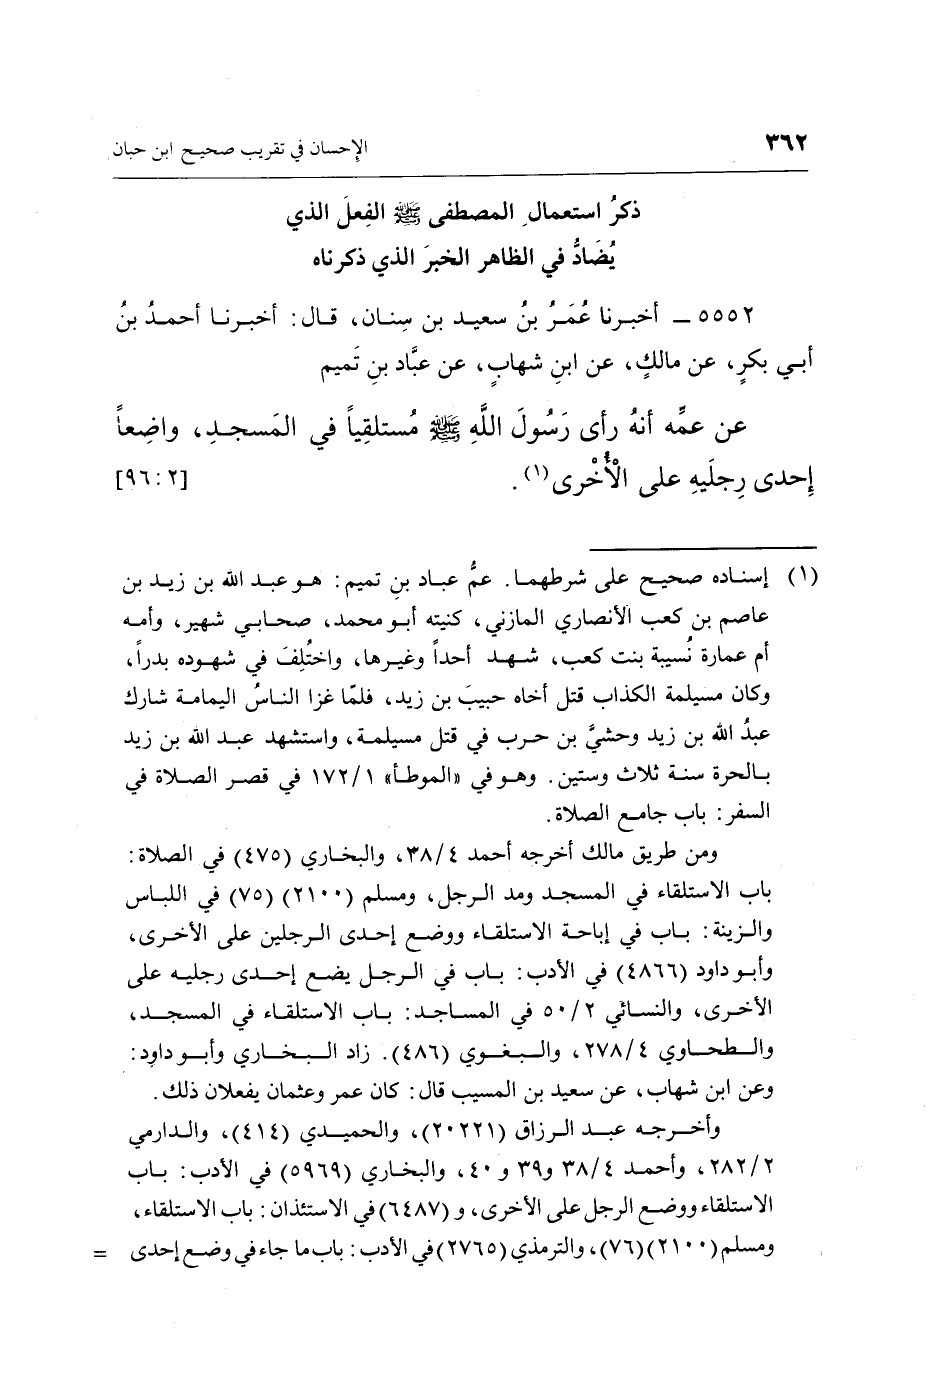 ٣٦٢
الإحسان في تقريب صحيح ابن حبان
ذكرُ استعمالِ المصطفى ﷺ الفِعلَ الذي
يُضَادُّ في الظاهر الخبرَ الذي ذكرناه
٥٥٥٢ ـ أخبرنا عُمَرُ بنُ سعيد بن سِنان، قال: أخبرنا أحمدُ بنُ
أبي بكرٍ، عن مالكٍ، عن ابنِ شهابٍ، عن عبَّاد بنِ تَميم
عن عمِّه أنهُ رأى رَسُولَ اللَّهِ ﷺ مُستلقِياً في المَسجدِ، واضِعاً
إحدى رِجلَيهِ على الْأُخْرى(١). [٩٦:٢]
(١) إسناده صحيح على شرطهما. عمُّ عباد بنِ تميم: هو عبد الله بن زيد بن
عاصم بن كعب الأنصاري المازني، كنيته أبو محمد، صحابي شهير، وأمه
أم عمارة نُسيبة بنت كعب، شهد أحداً وغيرها، واختُلِفَ في شهوده بدراً،
وكان مسيلمة الكذاب قتل أخاه حبيبَ بن زيد، فلمّا غزا الناسُ اليمامة شارك
عبدُ الله بن زيد وحشيَّ بن حرب في قتل مسيلمة، واستشهد عبد الله بن زيد
بالحرة سنة ثلاث وستين. وهو في «الموطأ» ١٧٢/١ في قصر الصلاة في
السفر: باب جامع الصلاة.
ومن طريق مالك أخرجه أحمد ٣٨/٤، والبخاري (٤٧٥) في الصلاة:
باب الاستلقاء في المسجد ومد الرجل، ومسلم (٢١٠٠) (٧٥) في اللباس
والزينة: باب في إباحة الاستلقاء ووضع إحدى الرجلين على الأخرى،
وأبو داود (٤٨٦٦) في الأدب: باب في الرجل يضع إحدى رجليه على
الأخرى، والنسائي ٥٠/٢ في المساجد: باب الاستلقاء في المسجد،
والطحاوي ٢٧٨/٤، والبغوي (٤٨٦). زاد البخاري وأبو داود:
وعن ابن شهاب، عن سعيد بن المسيب قال: كان عمر وعثمان يفعلان ذلك.
وأخرجه عبد الرزاق (٢٠٢٢١)، والحميدي (٤١٤)، والدارمي
٢٨٢/٢، وأحمد ٣٨/٤ و٣٩ و ٤٠، والبخاري (٥٩٦٩) في الأدب: باب
الاستلقاء ووضع الرجل على الأخرى، و (٦٤٨٧) في الاستئذان: باب الاستلقاء،
ومسلم (٢١٠٠) (٧٦)، والترمذي (٢٧٦٥) في الأدب: باب ما جاء في وضع إحدى =